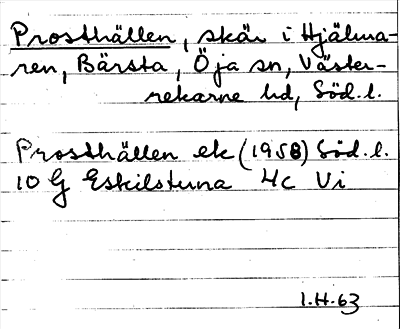 Prosthällen, skär i Hjälma-
ren, Bärsta, Öja sn, Väster-
rekarne hd, Söd.l.
Prosthällen ek (1958) Söd.l.
10 G Eskilstuna 4c Vi
I.H.63